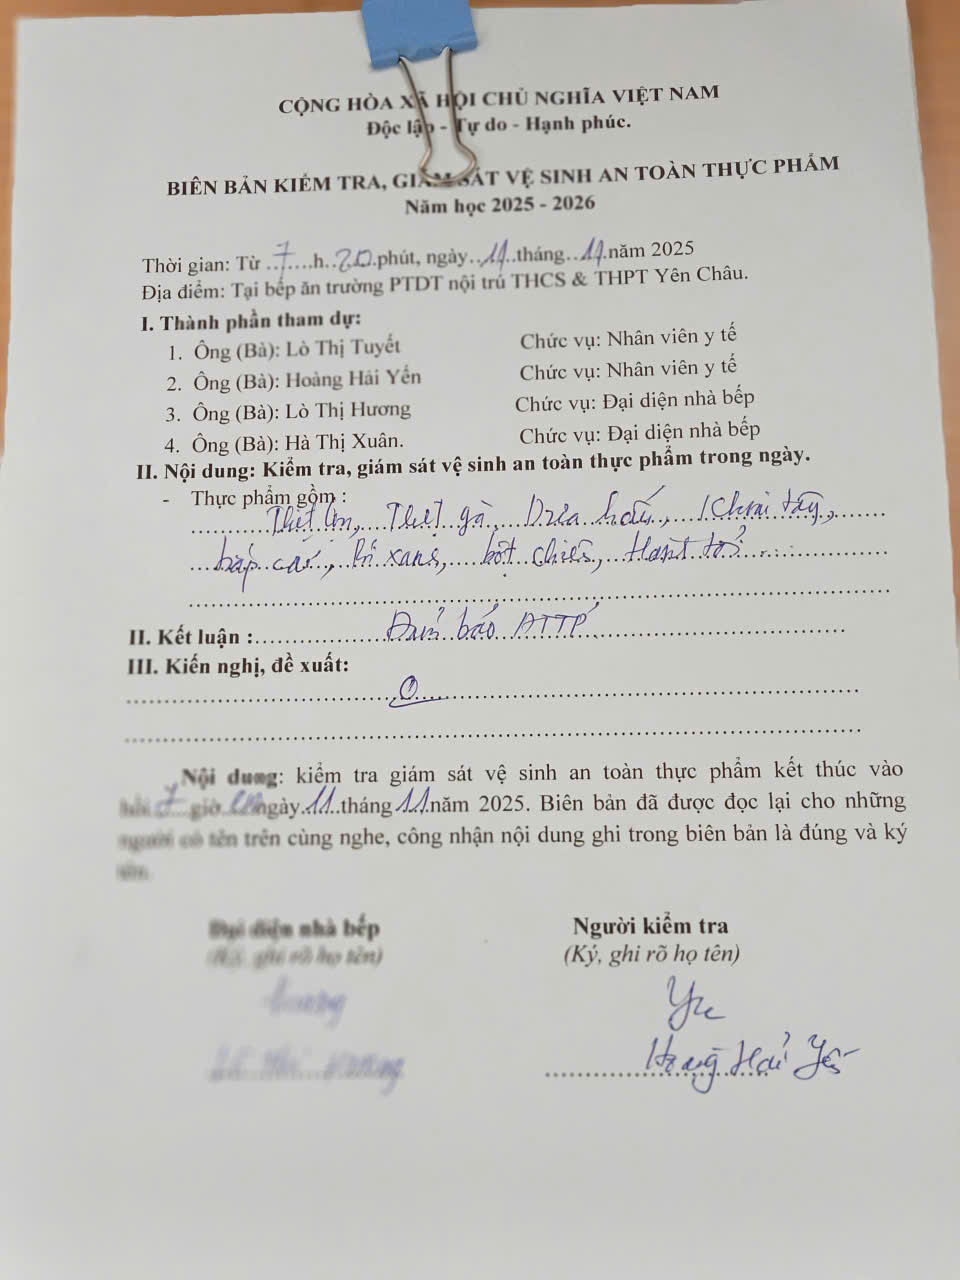 CỘNG HÒA XÃ HỘI CHỦ NGHĨA VIỆT NAM
Độc lập - Tự do - Hạnh phúc.
BIÊN BẢN KIỂM TRA, GIÁM SÁT VỆ SINH AN TOÀN THỰC PHẨM
Năm học 2025 - 2026
Thời gian: Từ ..7....h..20.phút, ngày..11..tháng..11.năm 2025
Địa điểm: Tại bếp ăn trường PTDT nội trú THCS & THPT Yên Châu.
I. Thành phần tham dự:
1. Ông (Bà): Lò Thị Tuyết Chức vụ: Nhân viên y tế
2. Ông (Bà): Hoàng Hải Yến Chức vụ: Nhân viên y tế
3. Ông (Bà): Lò Thị Hương Chức vụ: Đại diện nhà bếp
4. Ông (Bà): Hà Thị Xuân. Chức vụ: Đại diện nhà bếp
II. Nội dung: Kiểm tra, giám sát vệ sinh an toàn thực phẩm trong ngày.
- Thực phẩm gồm :
Thịt lợn, Thịt gà, Dưa hấu, Khoai tây,
bắp cải, bí xanh, bột chiên,
II. Kết luận : Đảm bảo ATTP
III. Kiến nghị, đề xuất:
0
Nội dung: kiểm tra giám sát vệ sinh an toàn thực phẩm kết thúc vào
hồi 7 giờ ngày 11 tháng 11 năm 2025. Biên bản đã được đọc lại cho những
người có tên trên cùng nghe, công nhận nội dung ghi trong biên bản là đúng và ký
tên.
Đại diện nhà bếp Người kiểm tra
(Ký, ghi rõ họ tên) (Ký, ghi rõ họ tên)
Hương Yến
Lò Thị Hương Hoàng Hải Yến